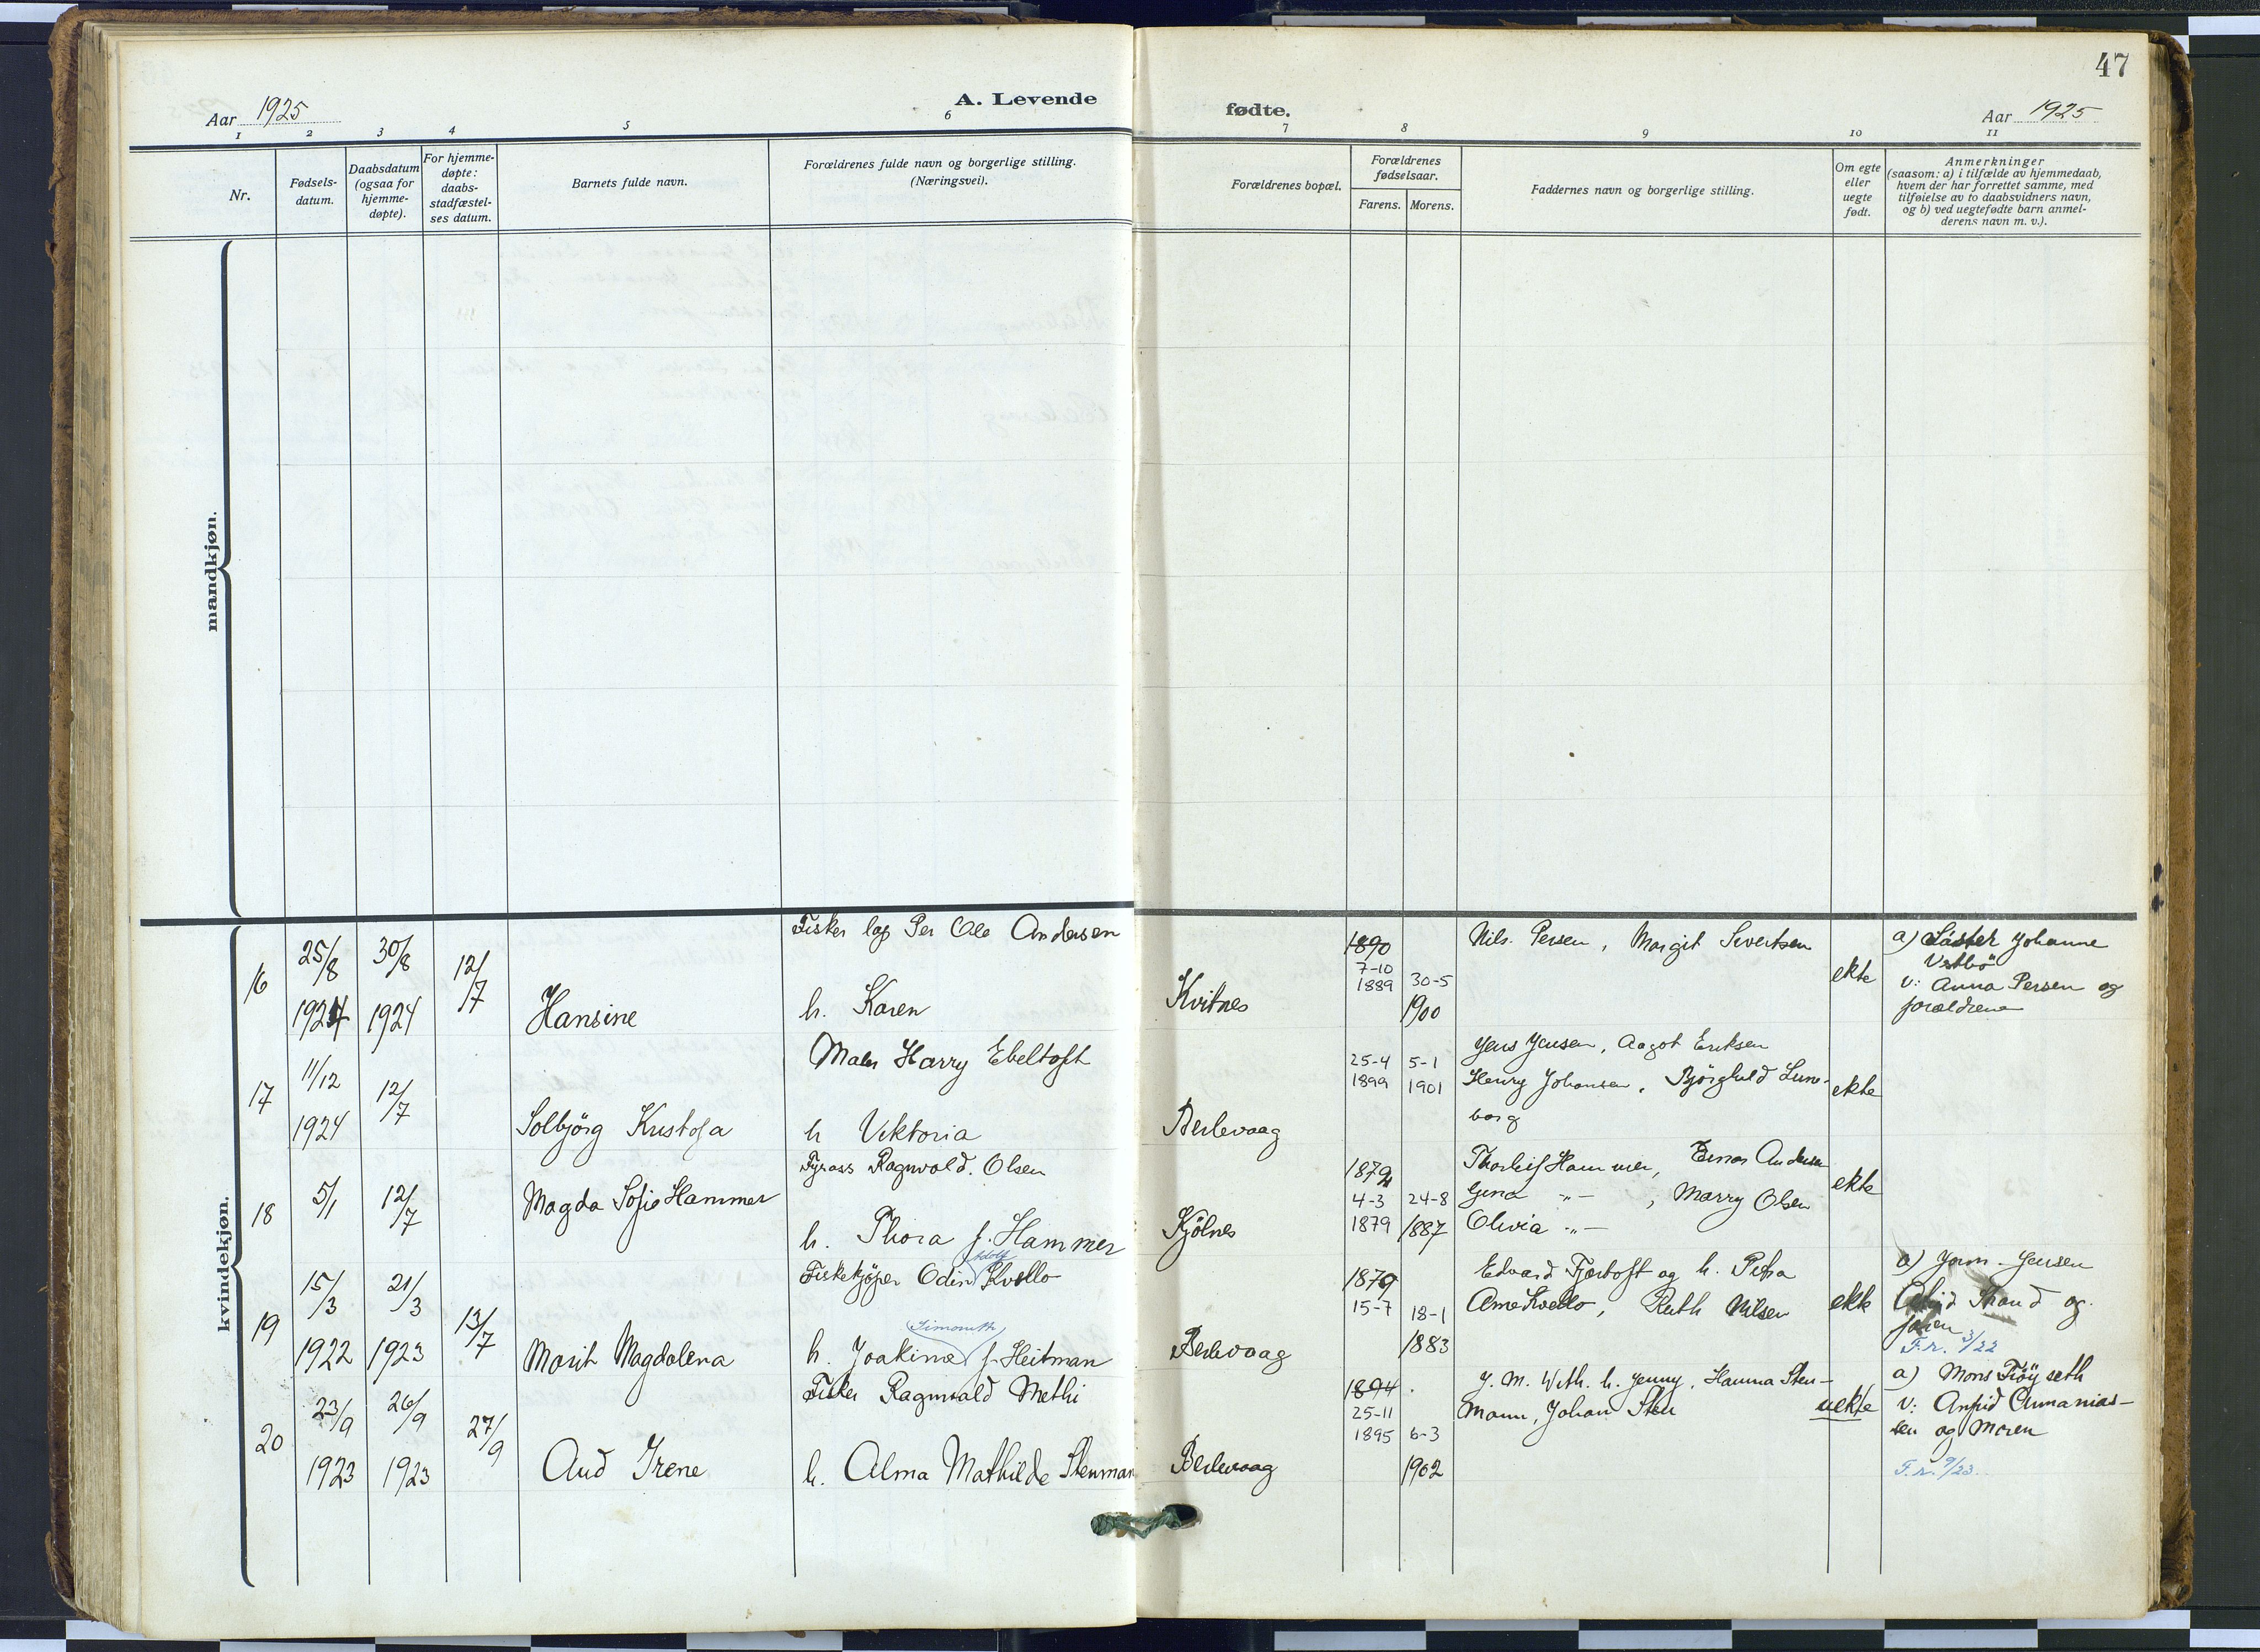 47
Aar 1925
A. Levende fødte.
Aar 1925
1 2 3 4 5 6 7 8 9 10 11
Nr.
Fødsels-
datum.
Daabsdatum
(ogsaa for
hjemme-
døpte).
For hjemme-
døpte:
daabs-
stadfæstel-
ses datum.
Barnets fulde navn.
Forældrenes fulde navn og borgerlige stilling.
(Næringsvei).
Forældrenes bopæl.
Forældrenes
fødselsaar.
Farens. Morens.
Faddernes navn og borgerlige stilling.
Om egte
eller
uegte
født.
Anmerkninger
(saasom: a) i tilfælde av hjemmedaab,
hvem der har forrettet samme, med
tilføielse av to daabsvidners navn,
og b) ved uegtefødte barn anmel-
derens navn m. v.).
mandkjøn.
kvindekjøn.
16
25/8
1924
30/8
1924
12/7
Hansine
Fisker lap Per Ole Andersen
h. Karen
Kvitnes
1890
7-10
1889
30-5
1900
Nils Persen, Margit Sivertsen
ekte
a) Søster Johanne
Vestbö
v: Anna Persen og
forældrene
17
11/12
1924
12/7
Solbjörg Kristofa
Maler Harry Ebeltoft
h Viktoria
Berlevaag
25-4
1899
5-1
1901
Jens Jensen, Aagot Eriksen
Henry Johansen, Bjørghild Lune-
borg
ekte
18
5/1
12/7
Magda Sofie Hammer
Fyrass Ragnvald Olsen
h. Thora f. Hammer
Kjölnes
1879
4-3
1879
24-8
1887
Thorleif Hammer, Einar Andersen
Gina -"- , Marry Olsen
Olivia -"-
ekte
19
15/3
1922
21/3
1923
13/7
Marit Magdalena
Fiskekjöper Odin Adolf Kvello
h. Joakine Simonette f. Heitman
Berlevaag
1879
15-7
18-1
1883
Edvard Fjørtoft og h. Petra
Arne Kvello, Ruth Nilsen
ekte
a) Jorm. Jensen
Strand og
F.r. 3/22
20
23/9
1923
26/9
1923
27/9
Aud Irene
Fisker Ragnvald Methi
h. Alma Mathilde Stenman
Berlevaag
1894
25-11
1895
6-3
1902
J. M. With. h. Jenny, Hanna Sten-
mann, Johan Sten
uekte
a) Mons Fröyseth
v: Arnfid Ananias-
sen og Moren
F.r. 9/23.